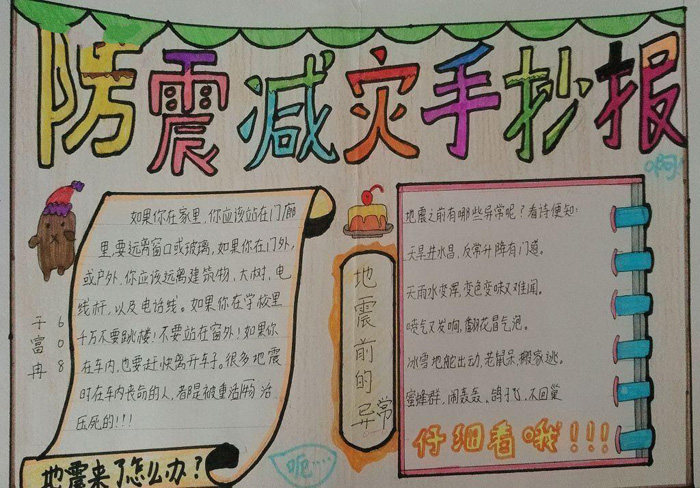 防震减灾手抄报
啊!
如果你在家里、你应该站在门廊
里.要远离窗口或玻璃,如果你在门外,
或户外、你应该远离建筑物,大树、电
线杆,以及电话线。如果你在学校里
千万不要跳楼!不要站在窗外!如果你
在车内,也要赶快离开车子。很多地震
时在车内丧命的人、都是被重活物 活
压死的!!!
于富冉
608
地震来了怎么办?
呃……
地震前的异常
地震之前有哪些异常呢?看诗便知:
天旱井水冒,反常升降有门道。
天雨水变浑,变色变味又难闻。
喷气又发响,翻花冒气泡。
冰雪地蛇出动,老鼠呆,搬家逃。
蜜蜂群,闹轰轰、鸽子飞、不回巢
仔细看哦!!!